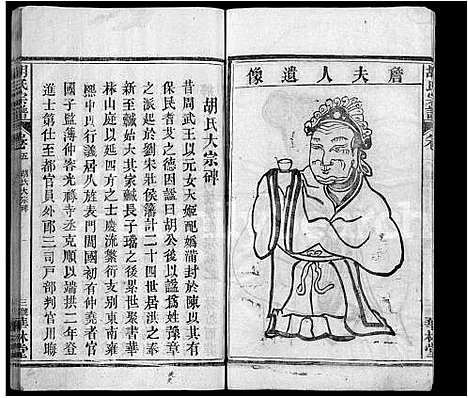 詹夫人遺像
胡氏大宗碑
昔周武王以元女大姬配媯滿封於陳以其有
保民耆艾之德因諡曰胡公後以諡爲姓豫章
之派起於劉宋壯侯藩計二十四世居洪之奉
新至瑊始大其家瑊長子璫之後累世聚書華
林山庭以延四方之士慶流蕃衍支別東南雍
熙中有行議居八族表門閭國初有仲堯者官
國子監薄仲容光祿寺丞克順以端拱二年登
進士第仕至都官員外郎三司戶部判官用晦
胡氏宗譜
卷五
胡氏大宗碑
華林堂